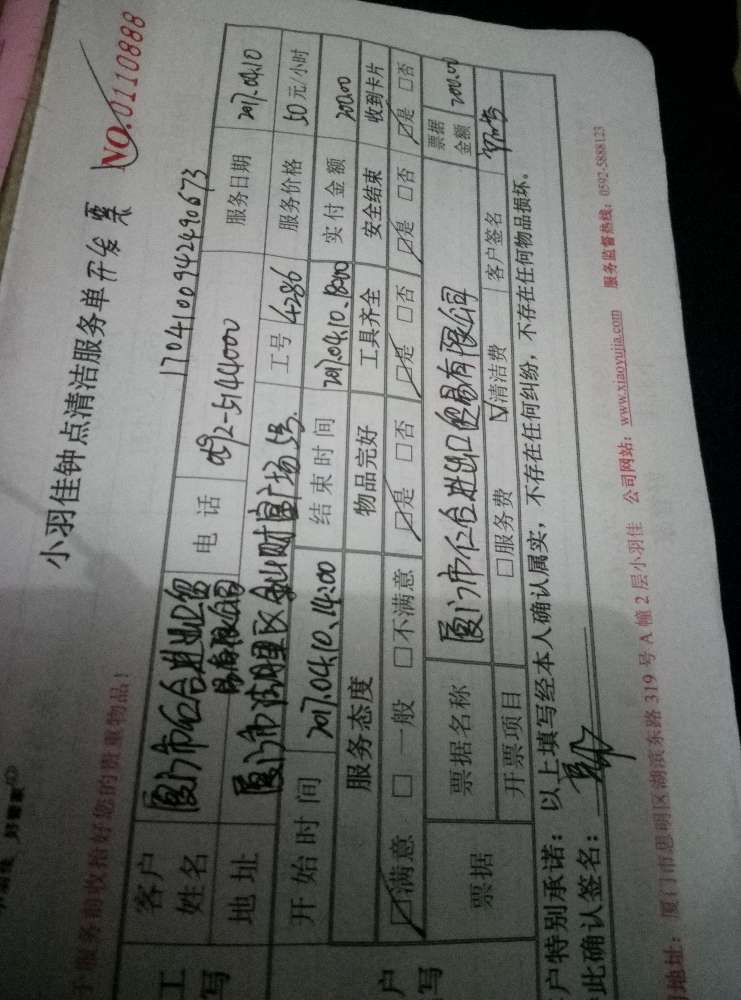 小羽佳钟点清洁服务单 开发票
NO.0110888
1704100942490673
服务前收拾好您的贵重物品！
客户姓名 厦门市仁台进出口贸易有限公司 电话 0592-5144000 服务日期 2017.04.10
地址 厦门市 广场 工号 4286 服务价格 50元/小时
开始时间 2017.04.10.14:00 结束时间 2017.04.10.18:00 实付金额 200.00
服务态度 物品完好 工具齐全 安全结束 收到卡片
☑满意 □一般 □不满意 ☑是 □否 ☑是 □否 ☑是 □否 ☑是 □否
票据 票据名称 厦门市仁台进出口贸易有限公司 票据金额 200.00
开票项目 □服务费 ☑清洁费 客户签名
户特别承诺：以上填写经本人确认属实，不存在任何纠纷，不存在任何物品损坏。
此确认签名：
地址：厦门市思明区湖滨东路319号A幢2层小羽佳 公司网站：www.xiaoyujia.com 服务监督热线：0592-5888123